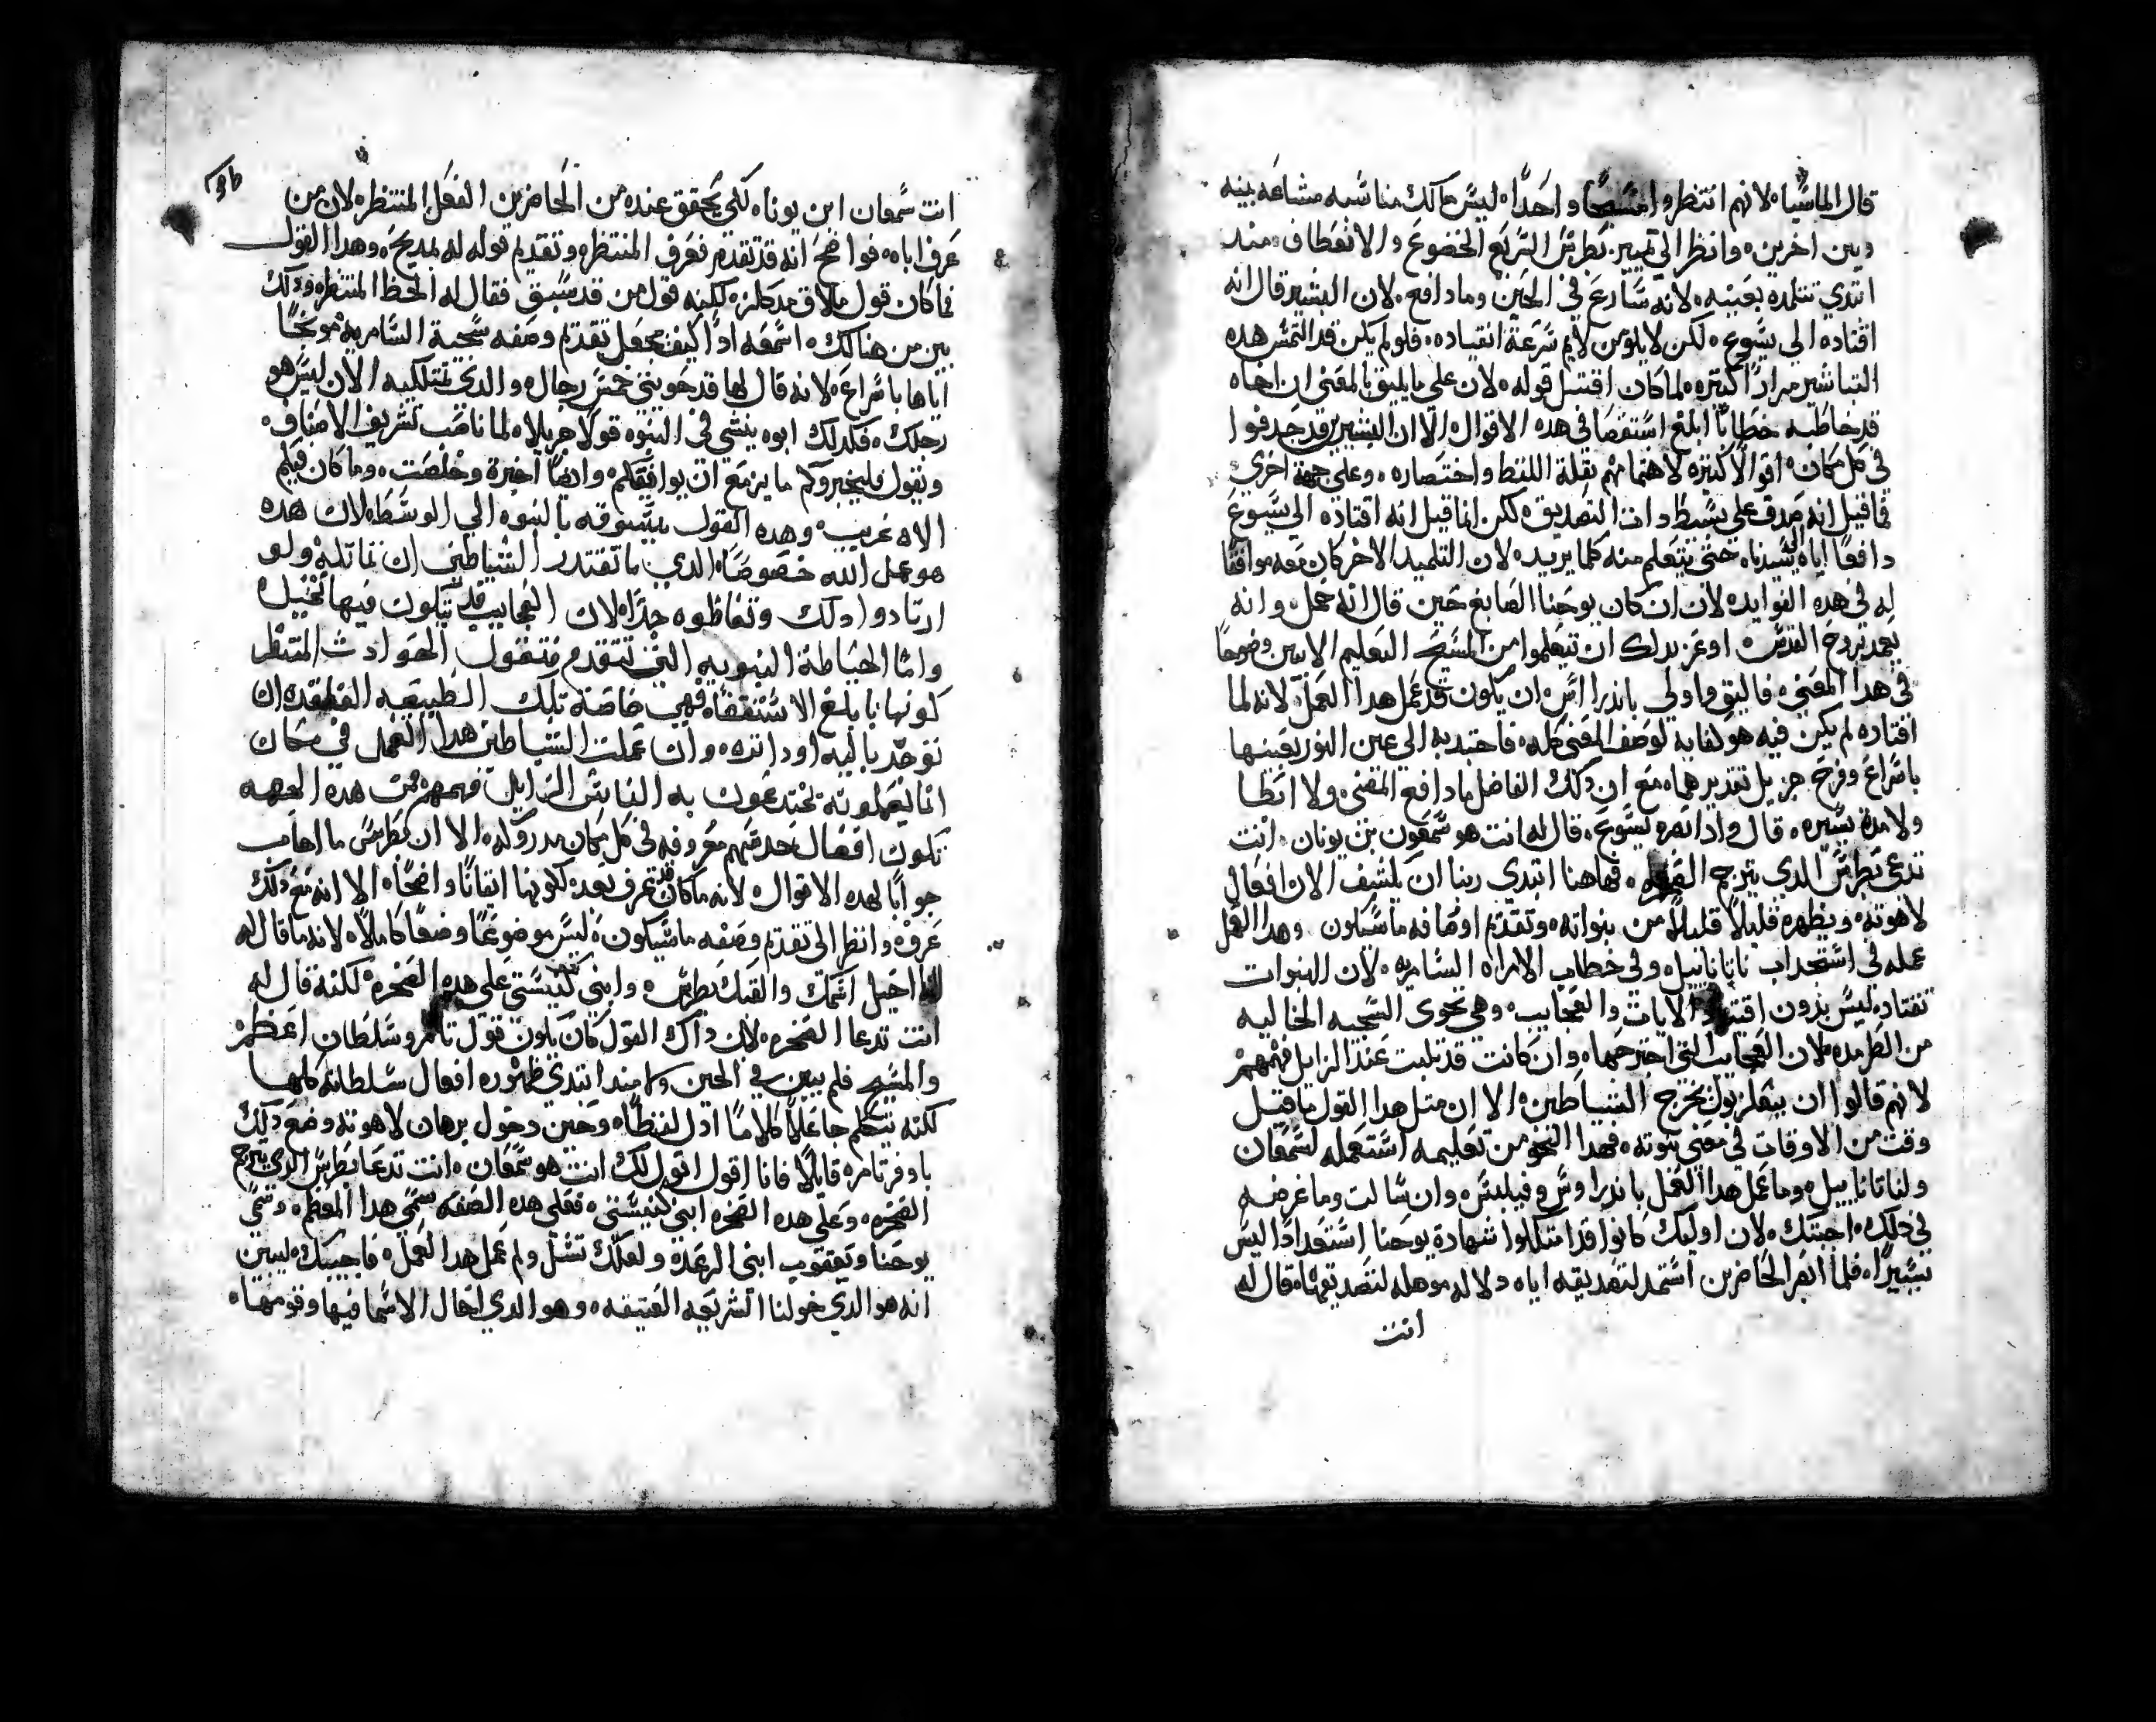 قال الماسيا، لانهم انتظروا مسيحًا واحدًا، ليس مالك مناسبه مشاعه بينه
وبين اخرين، وانظر الي تمييز بطرس السريع الخضوع والانعطاف منذ
ابتدي تتلمده بعينيه، لانه سارع في الحين وما دافع، لان البشير قال انه
اقتاده الي يسوع، لكن لا يلومن لايم سرعة انقياده، فلو لم يكن قد التمس هده
التباشير مرارًا كتيره لما كان اقتبل قوله، لان علي ما يليق بالمعني ان اخاه
قد خاطبه خطابًا ابلغ استقصا في هده الاقوال، الا ان البشيرين قد حدفوا
في كل مكان اقوالا كتيره لاهتمامهم بقلة اللفظ واختصاره، وعلي جهة اخري
فما قيل انه صدق علي بسيط دات التصديق، لكن انما قيل انه اقتاده الي يسوع
دافعًا اياه لسيدناه حتي يتعلم منه كلما يريد، لان التلميد الاخر كان معه موافقًا
له في هده الفوايد، لان ان كان يوحنا الصابغ حين قال انه حمل، وانه
يعمد بروح القدس، اوعز بدلك ان تتعلموا من المسيح التعليم الابين وضوحًا
في هدا المعني، فاليق واولي باندراس ان يكون قد عمل هدا العمل، لانه لما
اقتاده لم يكن فيه هو كفايه لوصف المعني كله، فاجتدبه الي عين النور بعينها
باسراع وفرح جزيل تقديرهما، مع ان دلك الفاضل ما دافع المعني ولا ابطا
ولا مدة يسيره، قال واد ابصره يسوع، قال له انت هو سمعون بن يونان، انت
تدعي بطرس الدي يترجم الصخره، فهاهنا ابتدي ربنا ان يكشف الان افعال
لاهوته، ويظهره قليلاً قليلاً من نبواته، وتقدم اوصافه ما سيكون، وهدا العمل
عمله في استجداب ناتانايل، وفي خطاب الامراه السامريه، لان النبوات
تقتاد ليس بدون اقتياد الايات والعجايب، وهي تحوي السجيه الخاليه
من الطرمده، لان العجايب التي اجترحها، وان كانت قد تلبت عند الزايل فهمهم
لانهم قالوا ان ببعلزبول يخرج الشياطين، الا ان متل هدا القول ما قيل
وقت من الاوقات في معني نبوته، فهدا النحو من تعليمه استعمله لسمعان
ولناتانايل، وما عمل هدا العمل باندراوس وفيلبس، وان سالت وما غرضه
في دلك، اجبتك، لان اوليك كانوا قد امتلكوا شهادة يوحنا استعدادًا ليس
يسيرًا، فلما ابصر الحاضرين استمد لتصديقه اياه دلاله موهله لتصديقهما، قال له
انت
انت سمعان ابن يونا، لكي يحقق عنده من الحاضرين الفعل المنتظر، لان من
عرف اباه، فواضح انه قد تقدم فعرف المنتظره وتقديم قوله له لمديحه، وهدا القول
فما كان قول ملاق مدكلزه لكنه قول من قد سبق فقال له الحظ المنتظره ودلك
بين من هنالك، اسمعه ادًا كيف يجعل تقدم وصفه سجية السامريه موبخًا
اياها باسراع، لانه قال لها قد حويتي خمس رجال، والدي تمتلكيه الان ليس هو
رجلك، فكدلك ابوه ينشي في النبوه قولا جزيلاه لما ناصب تشريف الاصنام
ويقول فليخبروكم ما يزمع ان يوافيكم، وايضًا اخبرت وخلصت، وما كان فيكم
الاه غريب، وهده القول يتسوقه بالنبوه الي الوسط، لان هده
هو عمل الله خصوصًا، الدي ما تقتدر الشياطين ان تماتله، ولو
ارتادوا دلك وتعاظوه جدًا، لان العجايب قد تكون فيها تخييل،
واما الحياطة النبويه التي تتقدم فتقول الحوادث المنتظر
كونها بابلغ الاستقصا، فهي خاصة تلك الطبيعه الفاقده ان
توجد باليه او داتره، وان عملت الشياطين هدا العمل في مكان
انما يعملونه يختدعون به الناس الزايل فهمهم، فمن هده الجهه
تكون افعال خدعتهم معروفه في كل مكان مدروكه، الا ان بطرس ما اجاب
جوابًا لهده الاقوال، لانه ما كان قد تعرف بعد كونها ايقانًا واضحًا، الا انه مع دلك
عرف وانظر الي تقدم وصفه ما سيكون، ليس موضوعًا وضعًا كاملاً، لانه ما قال له
انا احيل اسمك والقبك بطرس، وابني كنيستي علي هده الصخره، لكنه قال له
انت تدعا الصخره، لان داك القول كان يكون قول تامر وسلطان اعظم
والمسيح فلم يبين في الحين ومند ابتدي ظهوره افعال سلطانه كلها
لكنه يتكلم جاعلاً كلامًا ادل لفظًا، وحين وحول برهان لاهوته وضع دلك
باوفر تامره قايلاً فانا اقول اقول لك انت هو سمعان، انت تدعا بطرس الدي يترجم
الصخره، وعلي هده الصخره ابني كنيستي، فعلي هده الصفه سمي هدا المعظم، وسمي
يوحنا ويعقوب ابني الرعده ولعلك تسل ولم عمل هدا العمل، فاجيبك، ليبين
انه هو الدي خولنا الشريعه العتيقه، وهو الدي احال الاسما فيها وقومها،